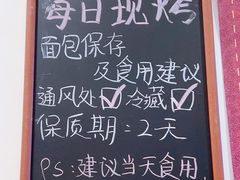 每日现烤
面包保存
及食用建议
通风处✓冷藏✓
保质期:2天
PS:建议当天食用